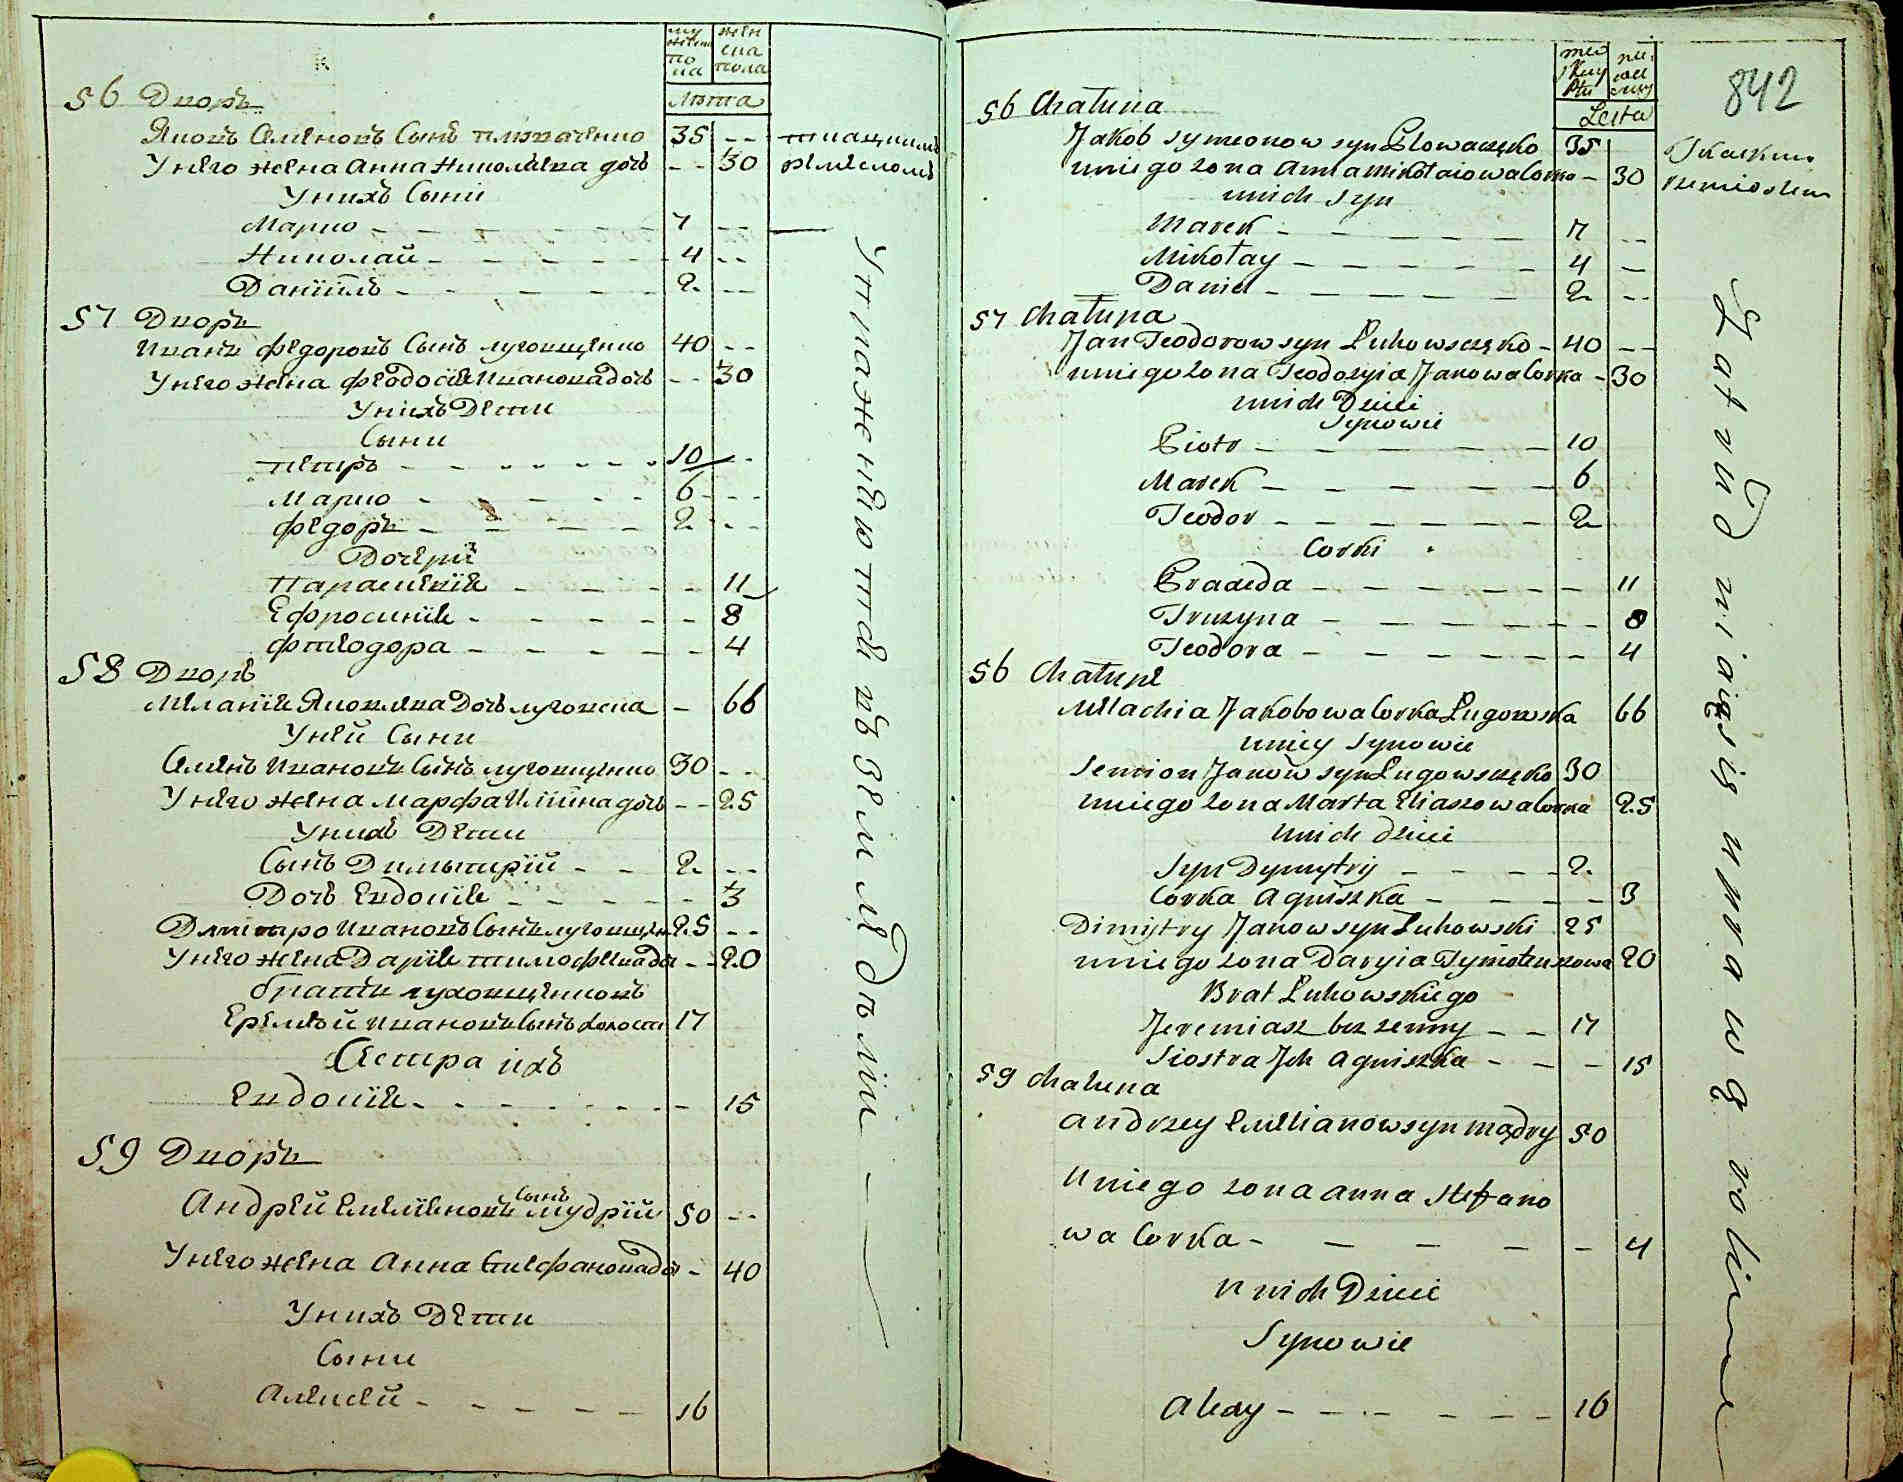 му
жеска
по
ла
жен
ска
пола
Лѣта
56 Дворъ
Яковъ Семеновъ Сынъ плювачен­ко 35 -- ткацкимъ
Унего жена Анна Николаева дочь -- 30 ремесломъ
Унихъ Сыни
Марко - - - - - 7 --
Николай - - - - - 4 --
Данїилъ - - - - - 2 --
57 Дворъ
Иванъ федоровъ Сынъ луговщенко 40 --
Унего жена феодосїя Иванова дочь -- 30
Унихъ Дети
Сыни
петръ - - - - - - 10 --
Марко - - - - - 6 - - -
федоръ - - - - - 2 - - -
Дочери
Параскевїя - - - - - 11
Ефросинїя - - - - - - 8
фтеодора - - - - - - 4
58 Дворъ
Меланїя Яковлева Дочь луговска - 66
Уней Сыни
Семенъ Ивановъ Сынъ луговщенко 30 --
Унего жена марфа Илїйна дочь -- 25
Унихъ Дети
Сынъ Димытрїй - - 2 --
Дочь Евдокїя - - - - - 3
Дмитро Ивановъ Сынъ луговщен 25 --
Унего жена Дарїя тимофеева до -- 20
братъ луговщенковъ
Еремѣй Ивановъ Сынъ холост 17
Сестра ихъ
Евдокїя - - - - - - - 15
59 Дворъ
Андрей Емелїеновъ Сынъ мудрїй 50 --
Унего жена Анна Стефанова до - 40
Унихъ Дети
Сыни
Алексей - - - - - 16
Упражняются въ земледѣлїи
842
Lesta
56 Chałupa
Jakob symeonow syn Plowaczęko 35 Tkackim
uniego zona Anna mikołaiowa Corka - 30 rzemiosłem
unich syn
Marek - - - - - - 7 --
Mikołay - - - - - - 4 --
Daniel - - - - - - 2 --
57 Chałupa
Jan Teodorow syn Luhowsczęko - 40 --
uniego zona Teodozyia Janowa Corka - 30
unich Dzieci
Synowie
Piotr - - - - - - 10
Marek - - - - - - 6
Teodor - - - - - - 2
Corki
Praxeda - - - - - - - 11
Fruzyna - - - - - - - 8
Teodora - - - - - - - 4
56 Chałupe
Mellachia Jakobowa Corka Lugowska 66
uniey Synowie
Semion Janow syn Lugowsczęko 30
uniego zona Marta Eliaszowa Corka 25
unich dzieci
Syn Dymytrij - - - - 2
Corka Agniszka - - - - - 3
Dimijtry Janow syn Luhowski 25
uniego zona Daryia Tymoteuszowa 20
Brat Luhowskiego
Jeremiasz bez zenny - - 17
Siostra Jch Agniszka - - - 15
59 Chalupa
Andrzey Emelianow syn Mądry 50
Uniego zona Anna Stefano
wa Corka - - - - - - 4
Unich Dzieci
Synowie
Alexy - - - - - - - 16
Zatrudniaią się uprawą rolinne